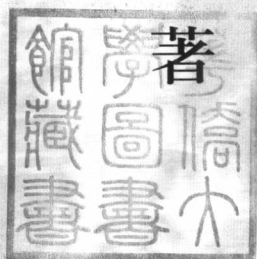 著
華僑大
學圖書
館藏書